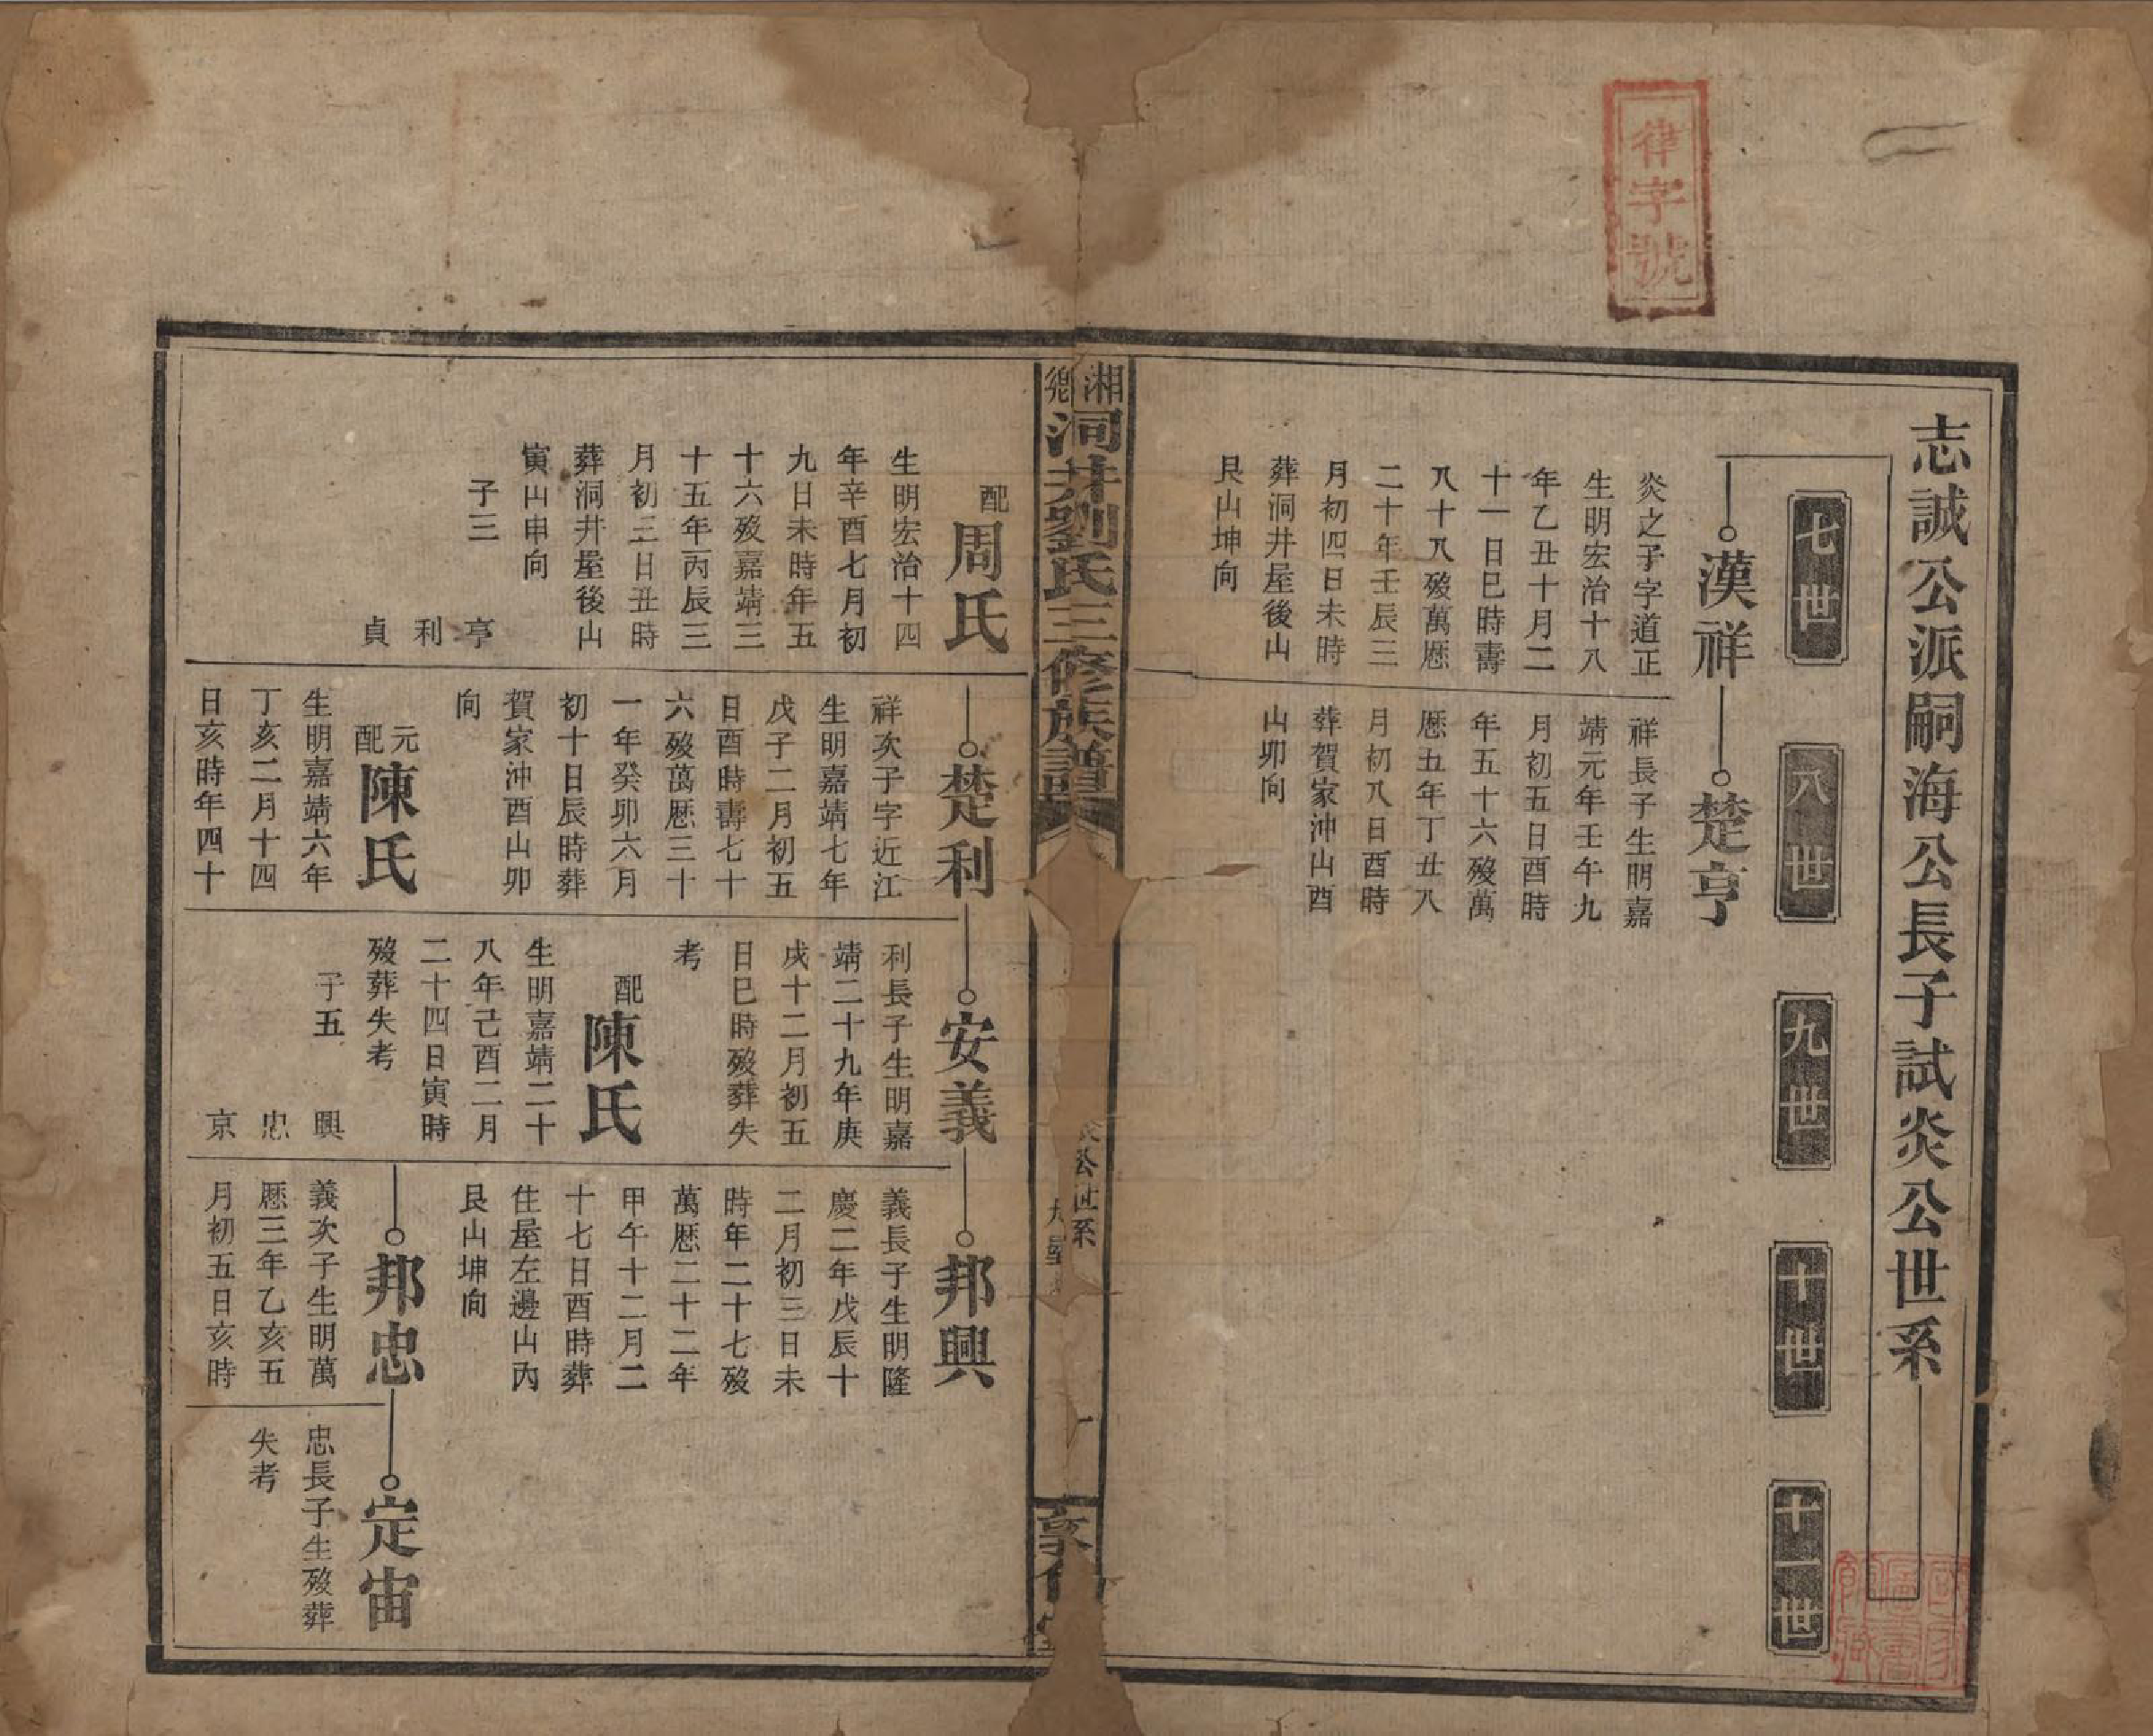 律字號
志誠公派嗣海公長子試炎公世系
七世
八世
九世
十世
十一世
漢祥
炎之子字道正
生明宏治十八
年乙丑十月二
十一日巳時壽
八十八歿萬厯
二十年壬辰三
月初四日未時
葬洞井屋後山
艮山坤向
楚亨
祥長子生明嘉
靖元年壬午九
月初五日酉時
年五十六歿萬
厯五年丁丑八
月初八日酉時
葬賀家沖山酉
山卯向
湘鄉洞井劉氏三修族譜
公世系
配周氏
生明宏治十四
年辛酉七月初
九日未時年五
十六歿嘉靖三
十五年丙辰三
月初三日丑時
葬洞井屋後山
寅山申向
子三
亨
利
貞
楚利
祥次子字近江
生明嘉靖七年
戊子二月初五
日酉時壽七十
六歿萬厯三十
一年癸卯六月
初十日辰時葬
賀家沖酉山卯
向
元配陳氏
生明嘉靖六年
丁亥二月十四
日亥時年四十
安義
利長子生明嘉
靖二十九年庚
戌十二月初五
日巳時歿葬失
考
配陳氏
生明嘉靖二十
八年己酉二月
二十四日寅時
歿葬失考
子五
興
忠
京
邦興
義長子生明隆
慶二年戊辰十
二月初三日未
時年二十七歿
萬厯二十二年
甲午十二月二
十七日酉時葬
住屋左邊山內
艮山坤向
邦忠
義次子生明萬
厯三年乙亥五
月初五日亥時
定宙
忠長子生歿葬
失考